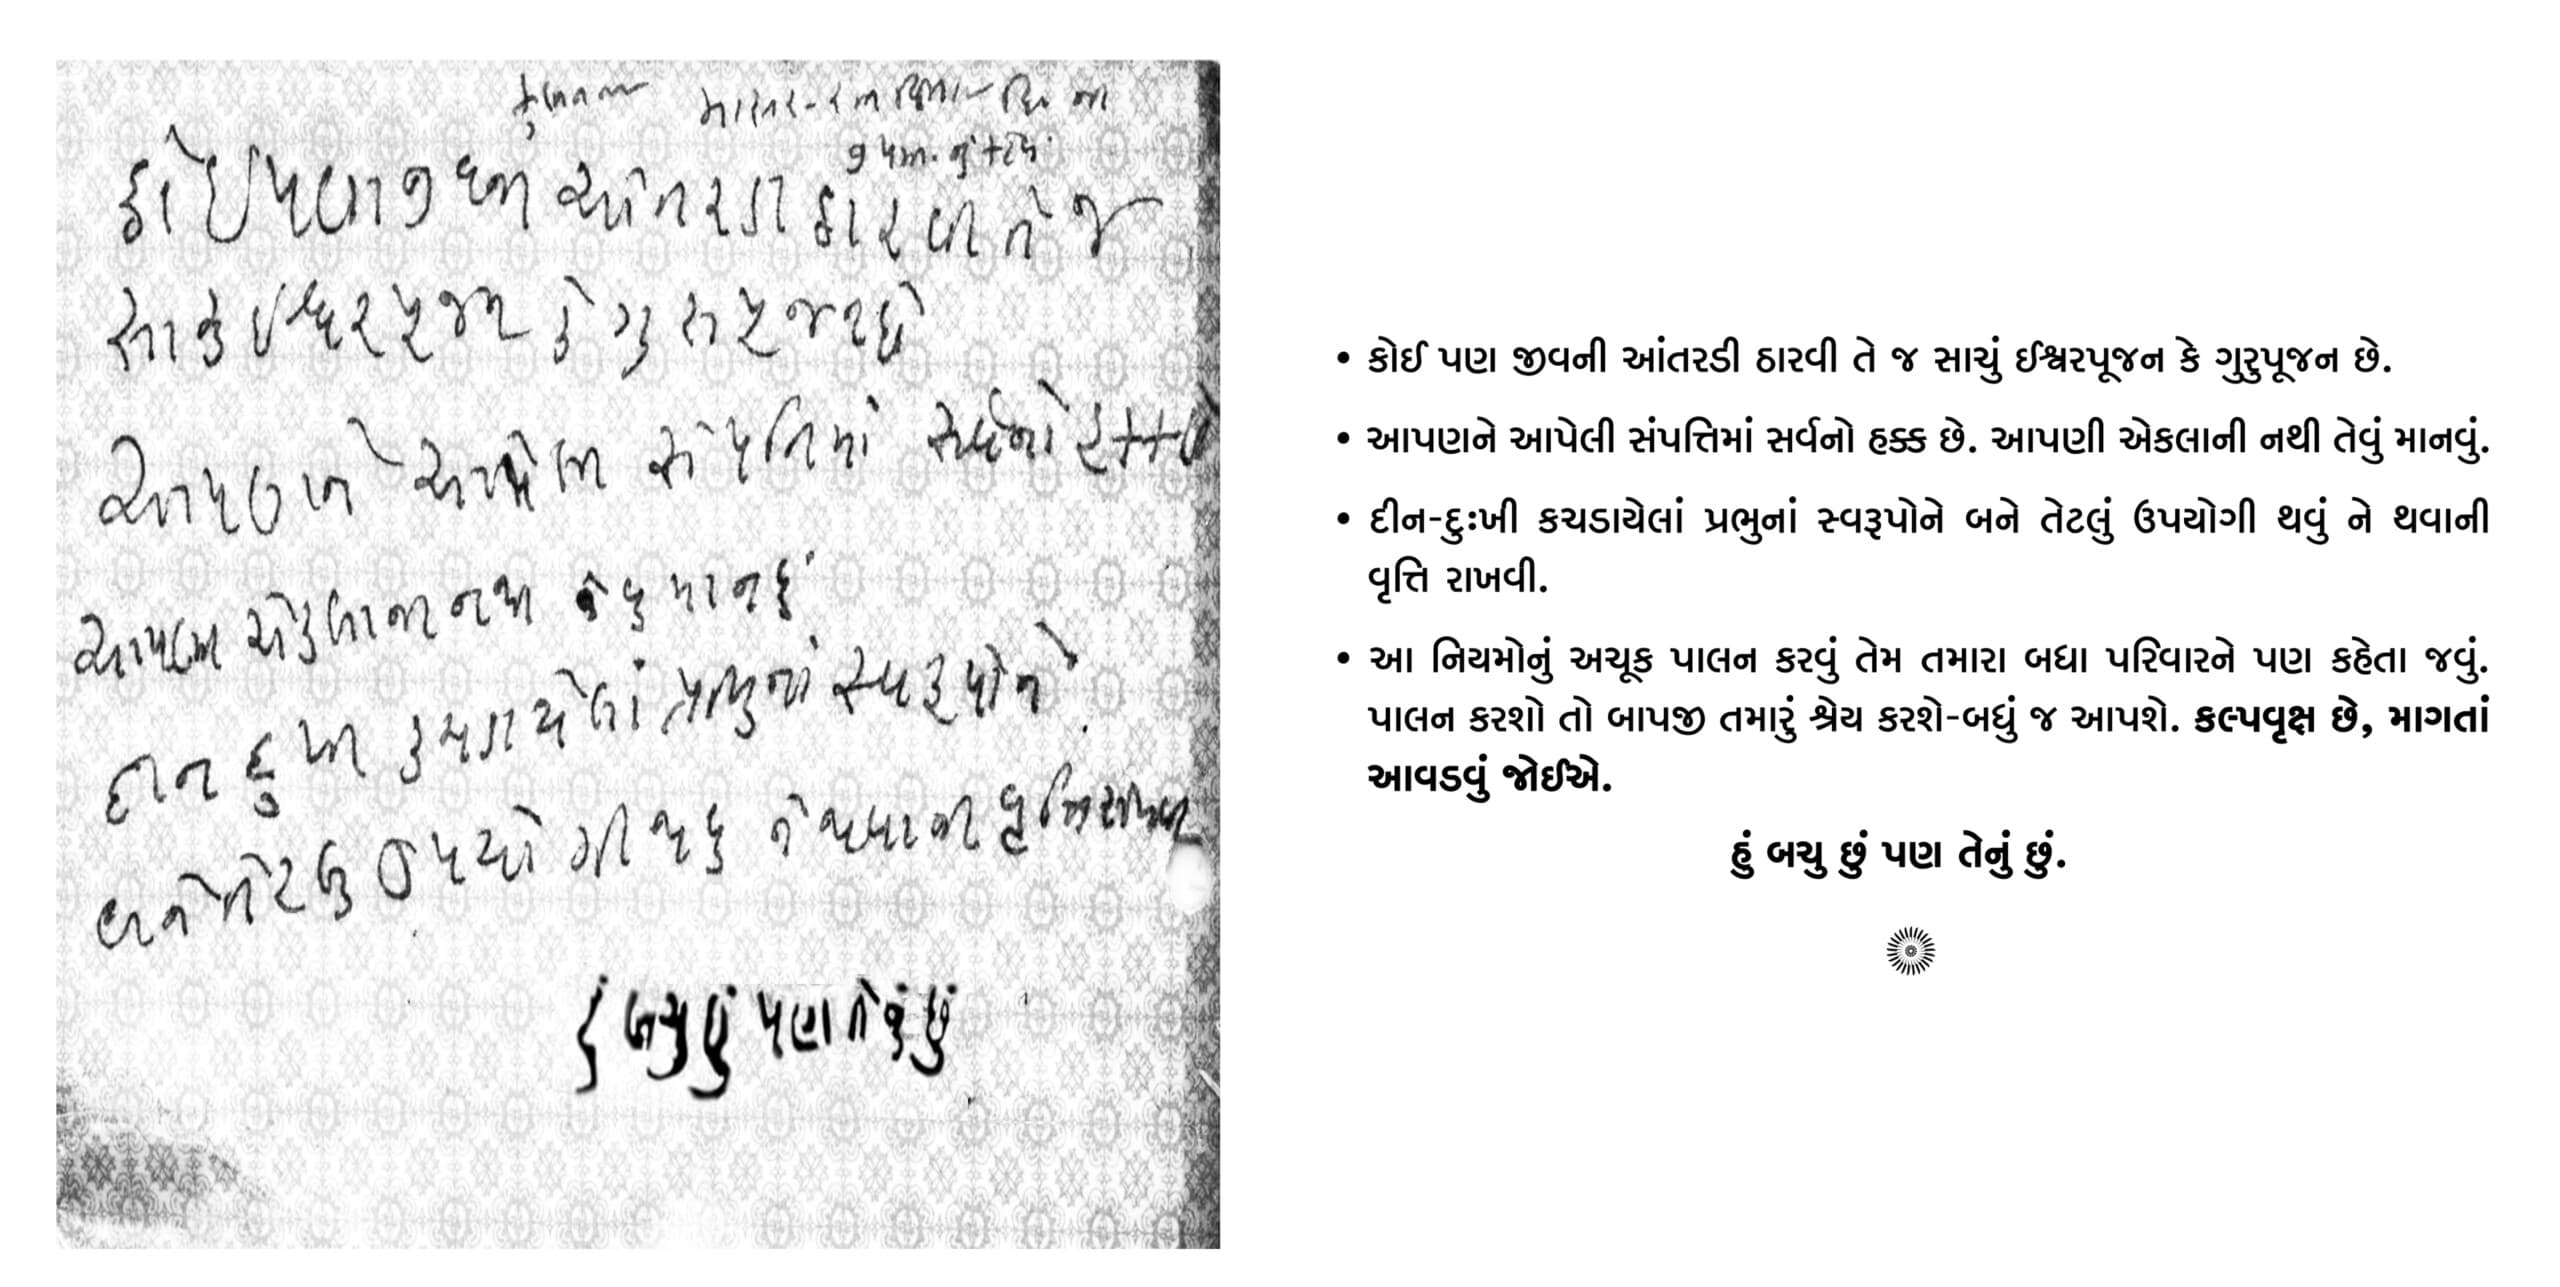 કોઈ પણ જીવની આંતરડી ઠારવી તે જ
સાચું ઈશ્વરપૂજન કે ગુરુપૂજન છે
આપણને આપેલી સંપત્તિમાં સર્વનો હક્ક છે
આપણી એકલાની નથી તેવું માનવું
દીન દુઃખી કચડાયેલાં પ્રભુનાં સ્વરૂપોને
બને તેટલું ઉપયોગી થવું ને થવાની વૃત્તિ રાખવી
હું બચુ છું પણ તેનું છું
• કોઈ પણ જીવની આંતરડી ઠારવી તે જ સાચું ઈશ્વરપૂજન કે ગુરુપૂજન છે.
• આપણને આપેલી સંપત્તિમાં સર્વનો હક્ક છે. આપણી એકલાની નથી તેવું માનવું.
• દીન-દુઃખી કચડાયેલાં પ્રભુનાં સ્વરૂપોને બને તેટલું ઉપયોગી થવું ને થવાની
વૃત્તિ રાખવી.
• આ નિયમોનું અચૂક પાલન કરવું તેમ તમારા બધા પરિવારને પણ કહેતા જવું.
પાલન કરશો તો બાપજી તમારું શ્રેય કરશે-બધું જ આપશે. કલ્પવૃક્ષ છે, માગતાં
આવડવું જોઈએ.
હું બચુ છું પણ તેનું છું.